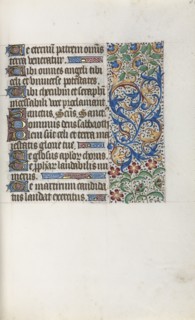 Te eternu patrem omis
terra veneratur.
Tibi omnes angeli tibi
celi et universe potestates.
Tibi cherubin et seraphi
incessabili voce proclamant
Sanctus, Scus, Sanct
Dominus deus sabbaoth
Pleni sut celi et terra ma
iestatis glorie tue.
Te glosus aplor chorus.
Te prphar laudabilis nu
merus.
Te martirum candida
tus laudat exercitus.